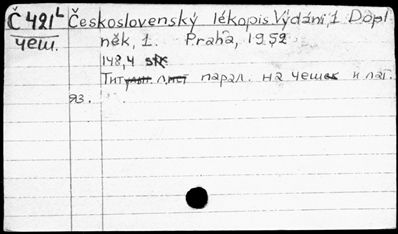 Č 421ᴸ Československý lékopis Vydání 1 Dopl-
чеш. něk, 1. Praha, 1952
148,4
Тит. лист парал. на чешск и лат.
93.